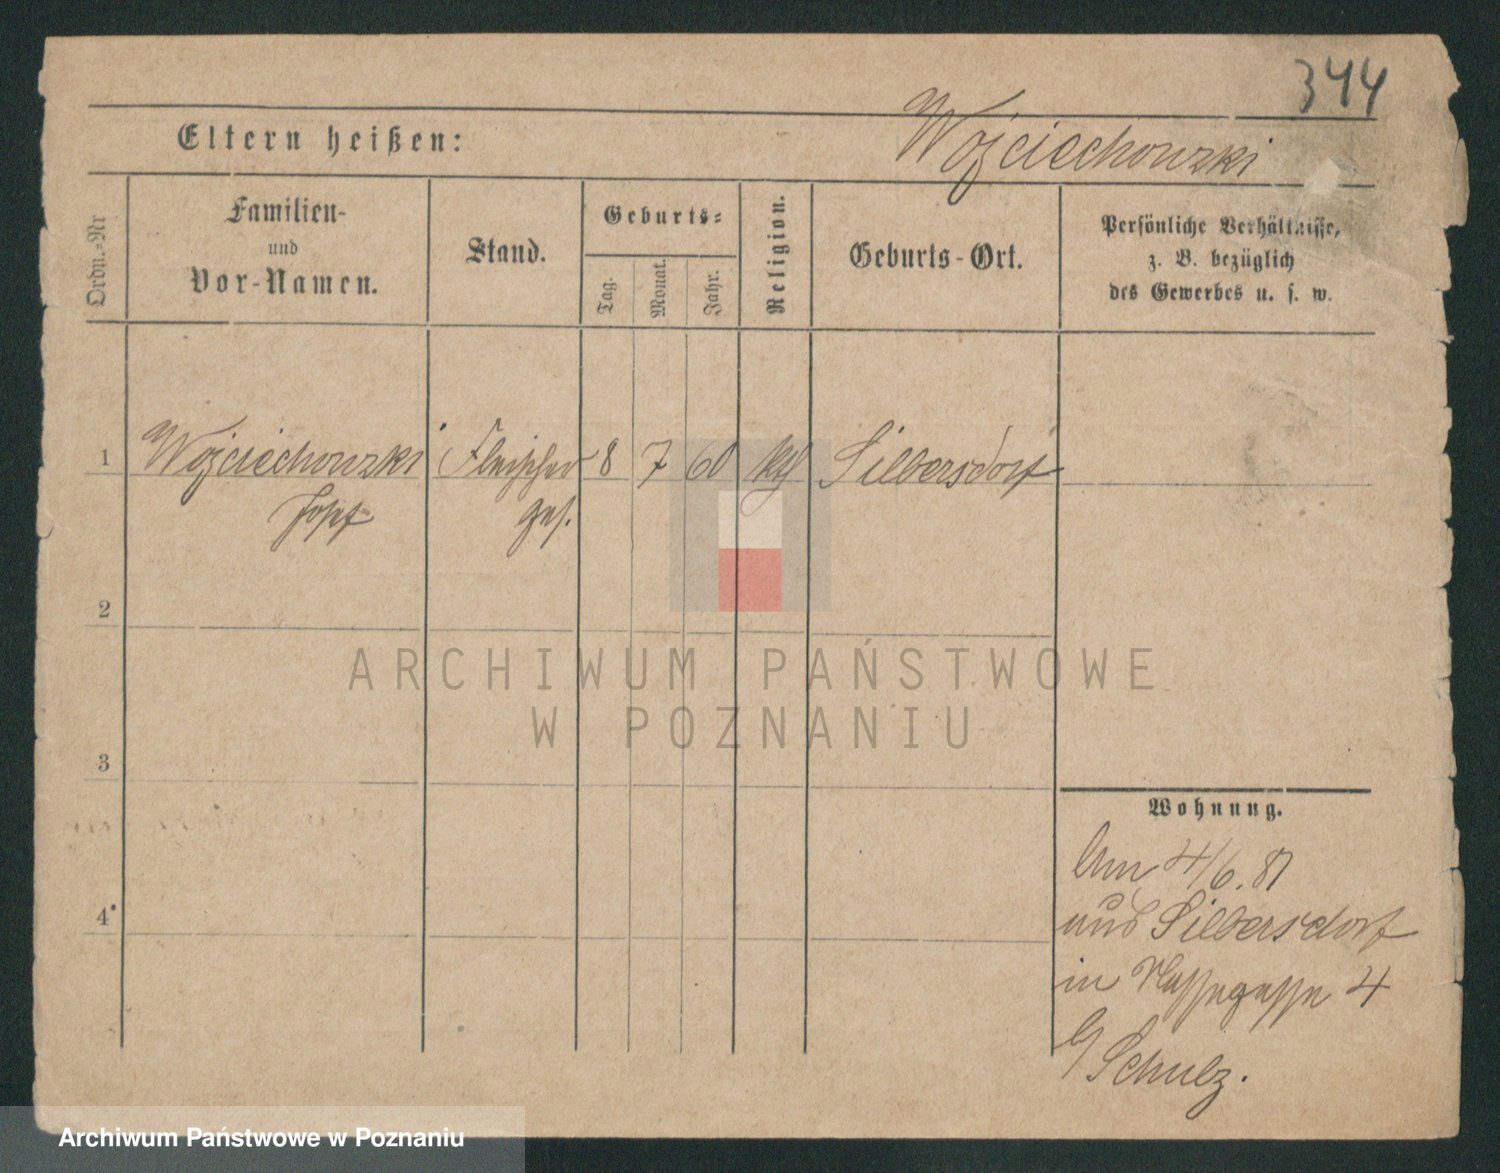 344
Wojciechowski
Eltern heißen:
Ordn.-Nr
Familien-
und
Vor-Namen.
Stand.
Geburts-
Tag.
Monat.
Jahr.
Religion.
Geburts-Ort.
Persönliche Verhältnisse,
z. B. bezüglich
des Gewerbes u. s. w.
1 Wojciechowski Fleischer 8 7 60 kth Silbersdorf
Josef ges.
2
3
4
ARCHIWUM PAŃSTWOWE
W POZNANIU
Wohnung.
Am 4/6.81
aus Silbersdorf
in 4
b/ Schulz.
Archiwum Państwowe w Poznaniu